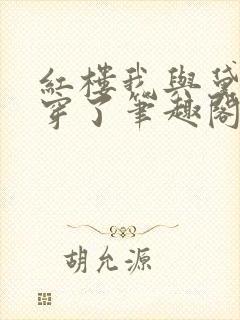 紅樓我與黛
穿了筆趣閣
胡允源